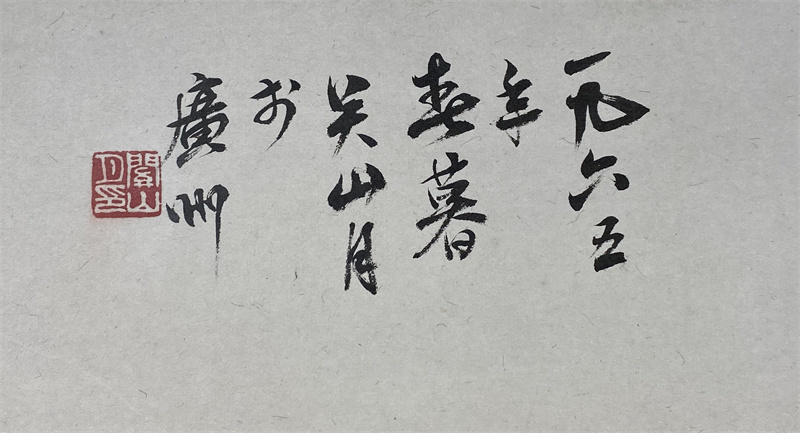 一九六五
年
春暮
关山月
於
廣州
關山月印